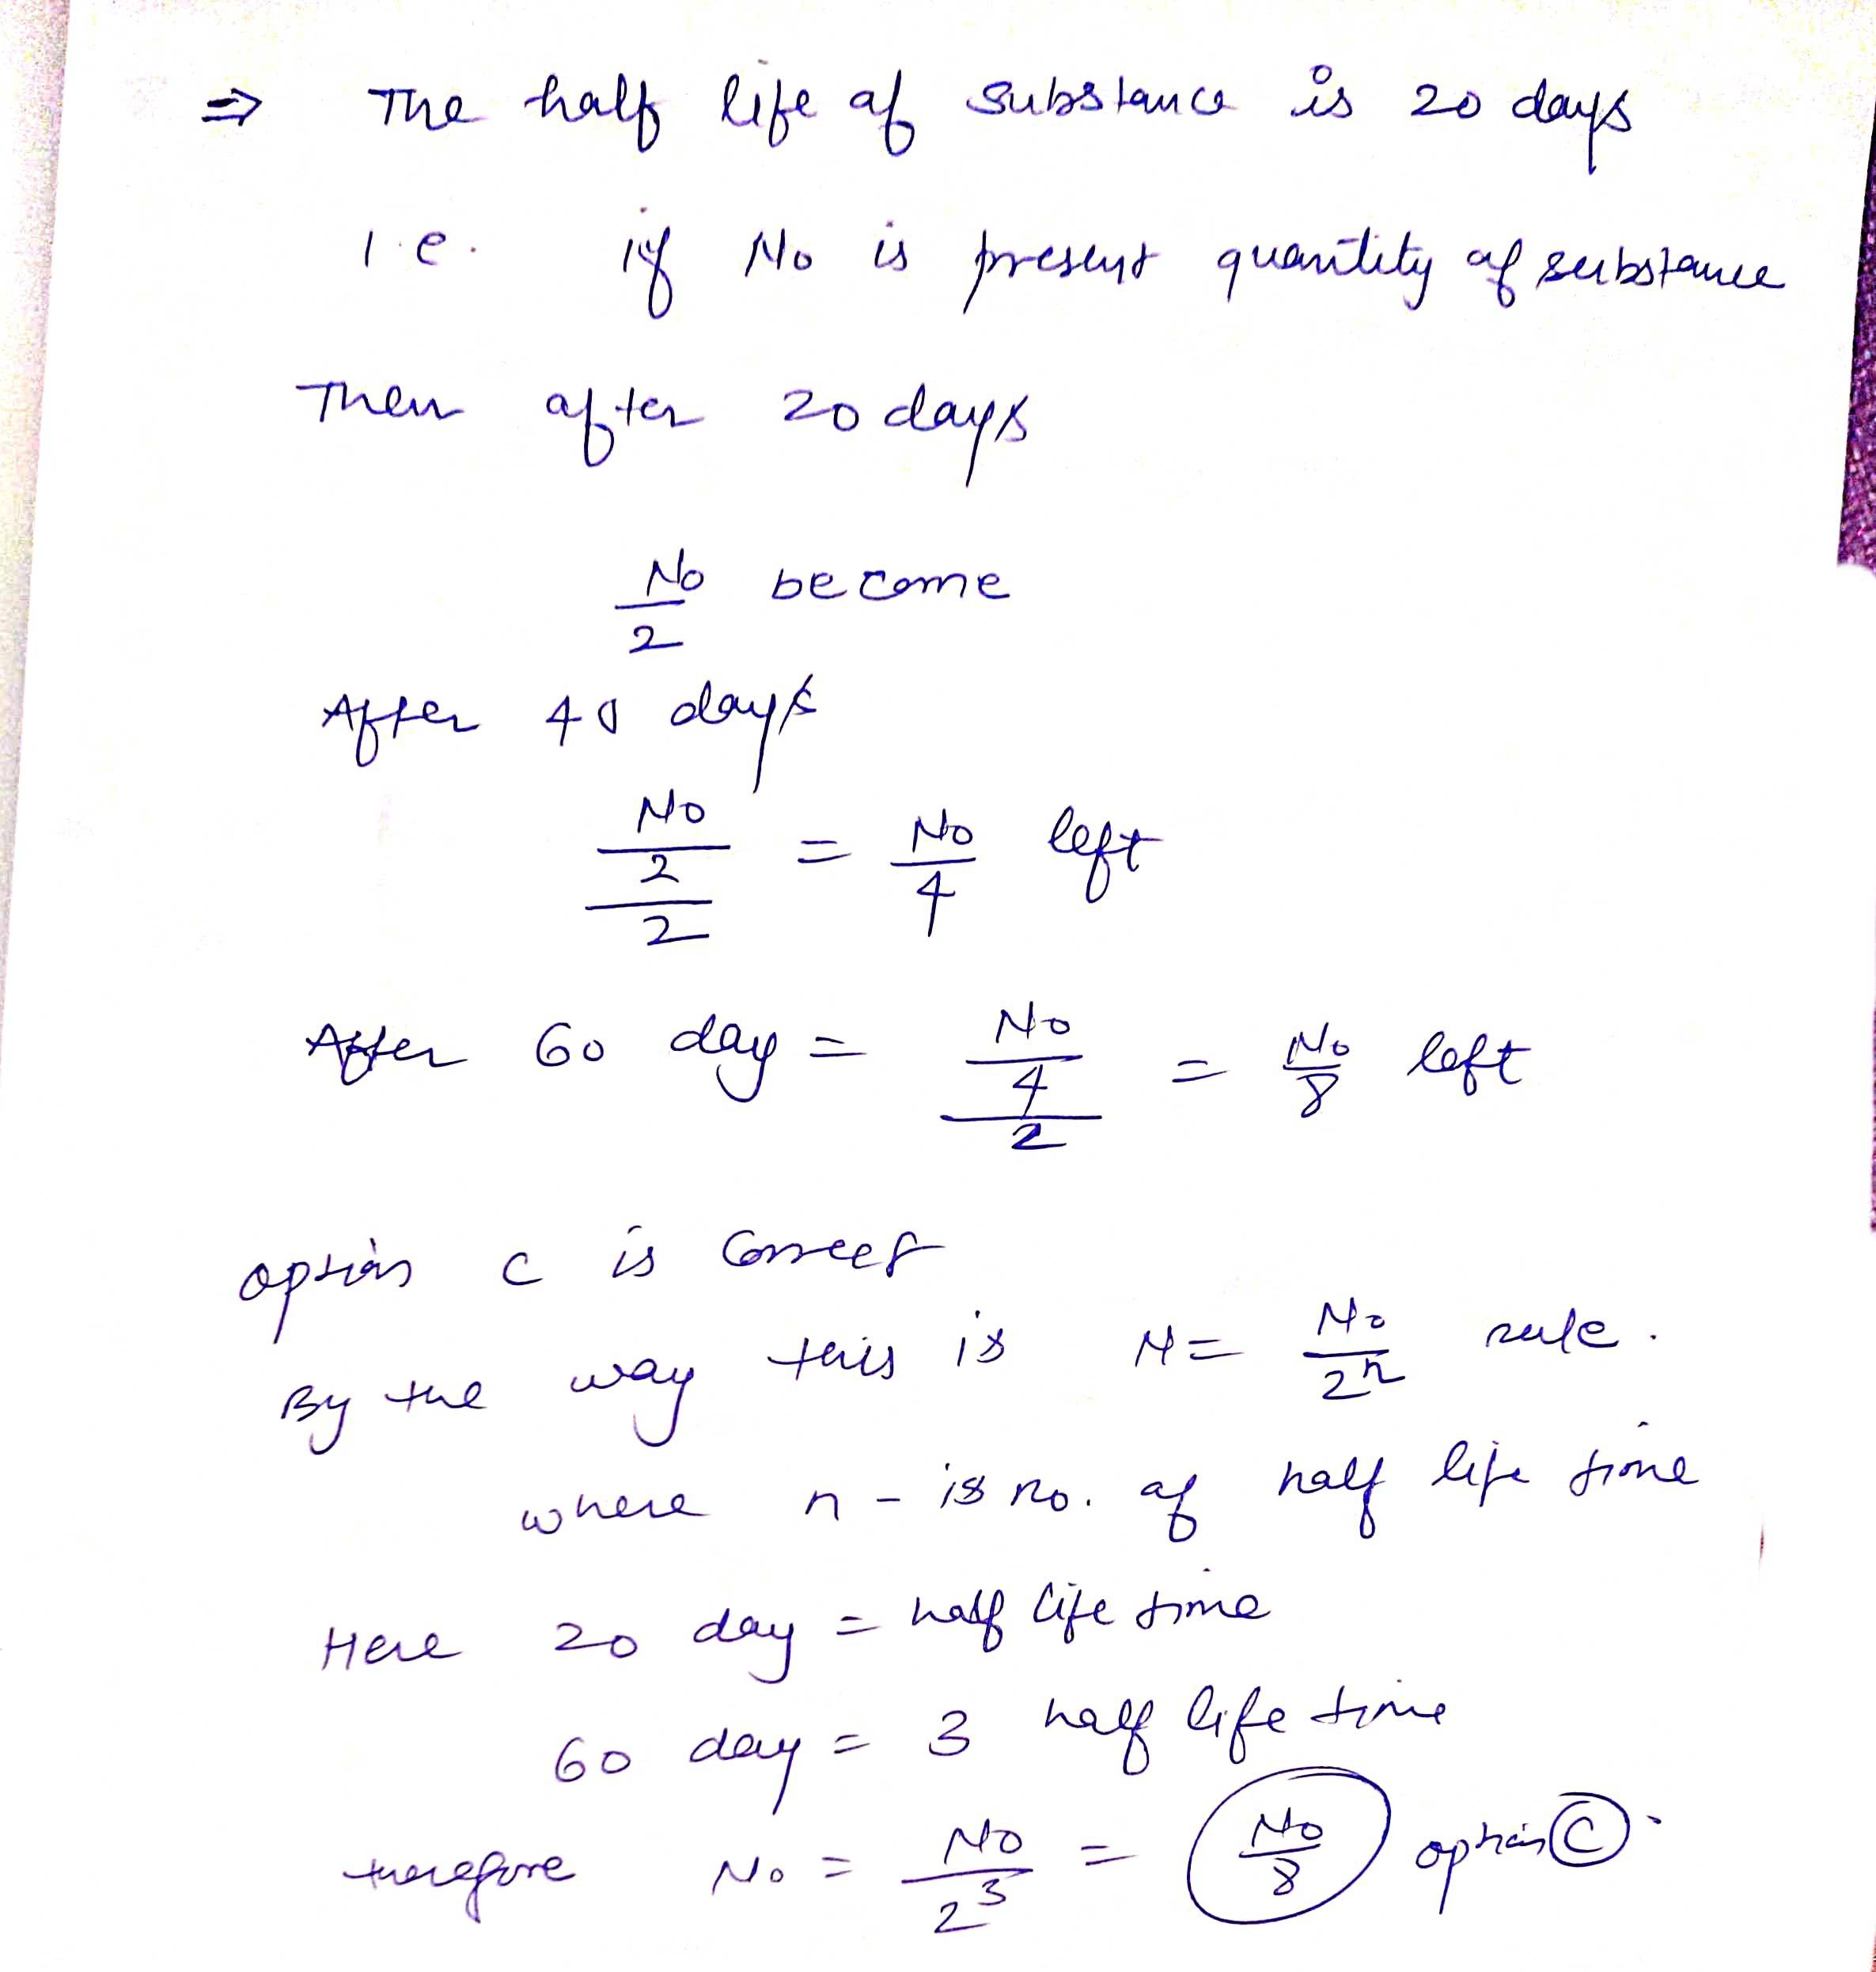 ⇒ The half life of substance is 20 days
i.e. if No is present quantity of substance
Then after 20 days
No/2 become
After 40 days
No/2/2 = No/4 left
After 60 day = No/4/2 = No/8 left
option c is correct
By the way this is N = No/2^n rule.
where n - is no. of half life time
Here 20 day = half life time
60 day = 3 half life time
therefore No = No/2^3 = No/8 option C.